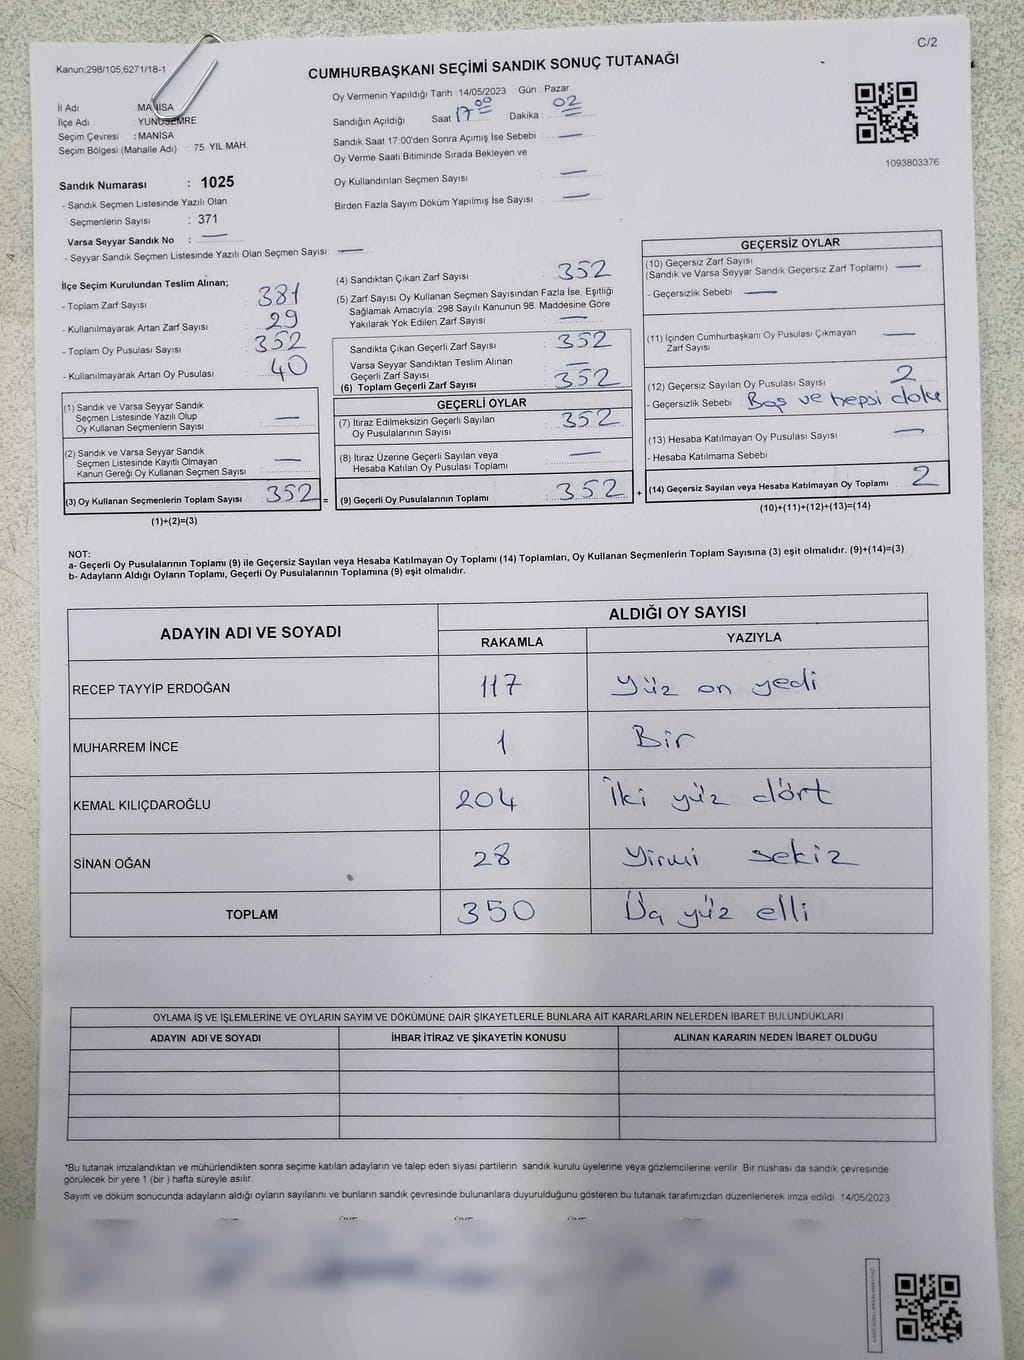 C/2
Kanun;298/105;6271/18-1
CUMHURBAŞKANI SEÇİMİ SANDIK SONUÇ TUTANAĞI
İl Adı MANİSA
İlçe Adı : YUNUSEMRE
Seçim Çevresi : MANİSA
Seçim Bölgesi (Mahalle Adı) : 75. YIL MAH.
Oy Vermenin Yapıldığı Tarih : 14/05/2023 Gün : Pazar
Sandığın Açıldığı Saat 17 00 Dakika : 02
Sandık Saat 17:00'den Sonra Açımış İse Sebebi : —
Oy Verme Saati Bitiminde Sırada Bekleyen ve
Oy Kullandırılan Seçmen Sayısı : —
Birden Fazla Sayım Döküm Yapılmış İse Sayısı : —
1093803376
Sandık Numarası : 1025
- Sandık Seçmen Listesinde Yazılı Olan
Seçmenlerin Sayısı : 371
Varsa Seyyar Sandık No : —
- Seyyar Sandık Seçmen Listesinde Yazılı Olan Seçmen Sayısı: —
İlçe Seçim Kurulundan Teslim Alınan;
- Toplam Zarf Sayısı : 381
- Kullanılmayarak Artan Zarf Sayısı : 29
- Toplam Oy Pusulası Sayısı : 352
- Kullanılmayarak Artan Oy Pusulası : 40
(1) Sandık ve Varsa Seyyar Sandık
Seçmen Listesinde Yazılı Olup
Oy Kullanan Seçmenlerin Sayısı : —
(2) Sandık ve Varsa Seyyar Sandık
Seçmen Listesinde Kayıtlı Olmayan
Kanun Gereği Oy Kullanan Seçmen Sayısı : —
(3) Oy Kullanan Seçmenlerin Toplam Sayısı : 352 =
(1)+(2)=(3)
(4) Sandıktan Çıkan Zarf Sayısı : 352
(5) Zarf Sayısı Oy Kullanan Seçmen Sayısından Fazla İse, Eşitliği
Sağlamak Amacıyla; 298 Sayılı Kanunun 98. Maddesine Göre
Yakılarak Yok Edilen Zarf Sayısı : —
Sandıkta Çıkan Geçerli Zarf Sayısı : 352
Varsa Seyyar Sandıktan Teslim Alınan
Geçerli Zarf Sayısı : —
(6) Toplam Geçerli Zarf Sayısı : 352
GEÇERLİ OYLAR
(7) İtiraz Edilmeksizin Geçerli Sayılan
Oy Pusulalarının Sayısı : 352
(8) İtiraz Üzerine Geçerli Sayılan veya
Hesaba Katılan Oy Pusulası Toplamı : —
(9) Geçerli Oy Pusulalarının Toplamı : 352 +
GEÇERSİZ OYLAR
(10) Geçersiz Zarf Sayısı
(Sandık ve Varsa Seyyar Sandık Geçersiz Zarf Toplamı) : —
- Geçersizlik Sebebi : —
(11) İçinden Cumhurbaşkanı Oy Pusulası Çıkmayan
Zarf Sayısı : —
(12) Geçersiz Sayılan Oy Pusulası Sayısı : 2
- Geçersizlik Sebebi : Boş ve hepsi dolu
(13) Hesaba Katılmayan Oy Pusulası Sayısı : —
- Hesaba Katılmama Sebebi :
(14) Geçersiz Sayılan veya Hesaba Katılmayan Oy Toplamı : 2
(10)+(11)+(12)+(13)=(14)
NOT:
a- Geçerli Oy Pusulalarının Toplamı (9) ile Geçersiz Sayılan veya Hesaba Katılmayan Oy Toplamı (14) Toplamları, Oy Kullanan Seçmenlerin Toplam Sayısına (3) eşit olmalıdır. (9)+(14)=(3)
b- Adayların Aldığı Oyların Toplamı, Geçerli Oy Pusulalarının Toplamına (9) eşit olmalıdır.
ADAYIN ADI VE SOYADI ALDIĞI OY SAYISI
RAKAMLA YAZIYLA
RECEP TAYYİP ERDOĞAN 117 Yüz on yedi
MUHARREM İNCE 1 Bir
KEMAL KILIÇDAROĞLU 204 İki yüz dört
SİNAN OĞAN 28 Yirmi sekiz
TOPLAM 350 Üç yüz elli
OYLAMA İŞ VE İŞLEMLERİNE VE OYLARIN SAYIM VE DÖKÜMÜNE DAİR ŞİKAYETLERLE BUNLARA AİT KARARLARIN NELERDEN İBARET BULUNDUKLARI
ADAYIN ADI VE SOYADI İHBAR İTİRAZ VE ŞİKAYETİN KONUSU ALINAN KARARIN NEDEN İBARET OLDUĞU
*Bu tutanak imzalandıktan ve mühürlendikten sonra seçime katılan adayların ve talep eden siyasi partilerin sandık kurulu üyelerine veya gözlemcilerine verilir. Bir nüshası da sandık çevresinde
görülecek bir yere 1 (bir ) hafta süreyle asılır.
Sayım ve döküm sonucunda adayların aldığı oyların sayılarını ve bunların sandık çevresinde bulunanlara duyurulduğunu gösteren bu tutanak tarafımızdan düzenlenerek imza edildi. 14/05/2023